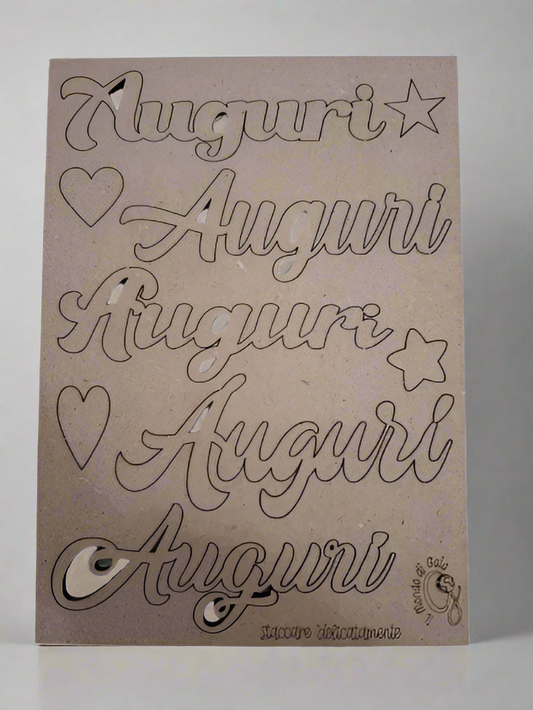 Auguri
Auguri
Auguri
Auguri
Auguri
Il Mondo di Gaia
staccare delicatamente